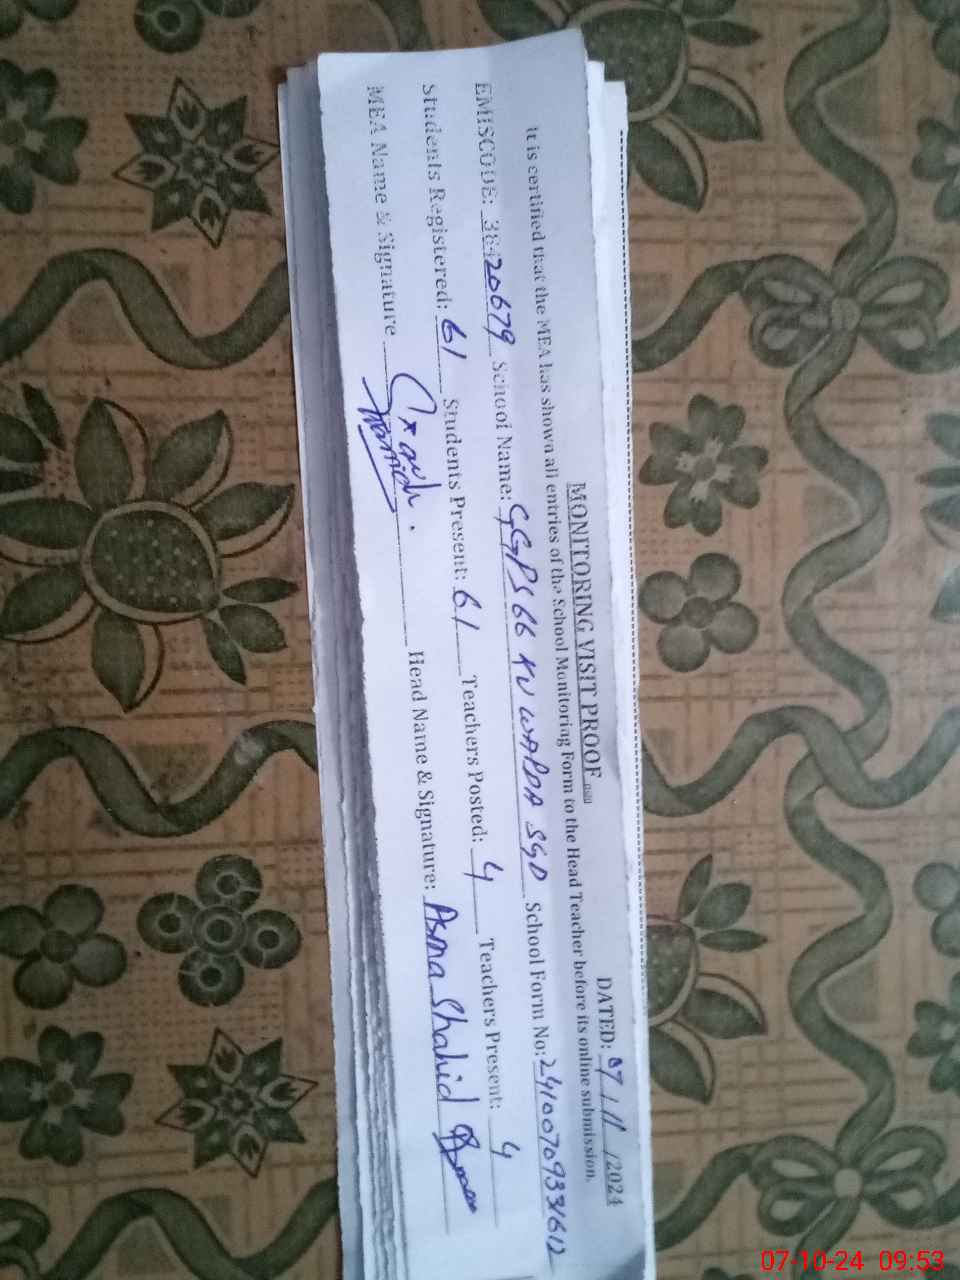 MONITORING VISIT PROOF
DATED: 07/11/2024
It is certified that the MEA has shown all entries of the School Monitoring Form to the Head Teacher before its online submission.
EMISCODE: 38420679 School Name: GGPS 66 School Form No:
Students Registered: 61 Students Present: 61 Teachers Posted: 4 Teachers Present: 4
MEA Name & Signature Head Name & Signature: Asma Shahid
07-10-24 09:53